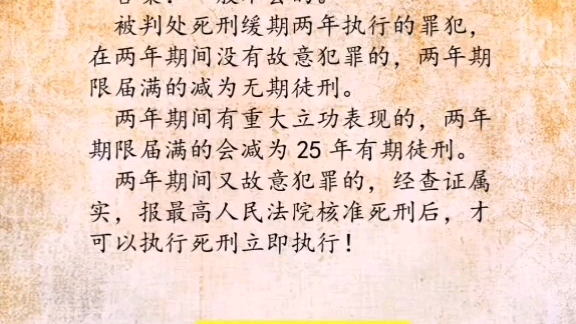 被判处死刑缓期两年执行的罪犯，
在两年期间没有故意犯罪的，两年期
限届满的减为无期徒刑。
两年期间有重大立功表现的，两年
期限届满的会减为 25 年有期徒刑。
两年期间又故意犯罪的，经查证属
实，报最高人民法院核准死刑后，才
可以执行死刑立即执行！